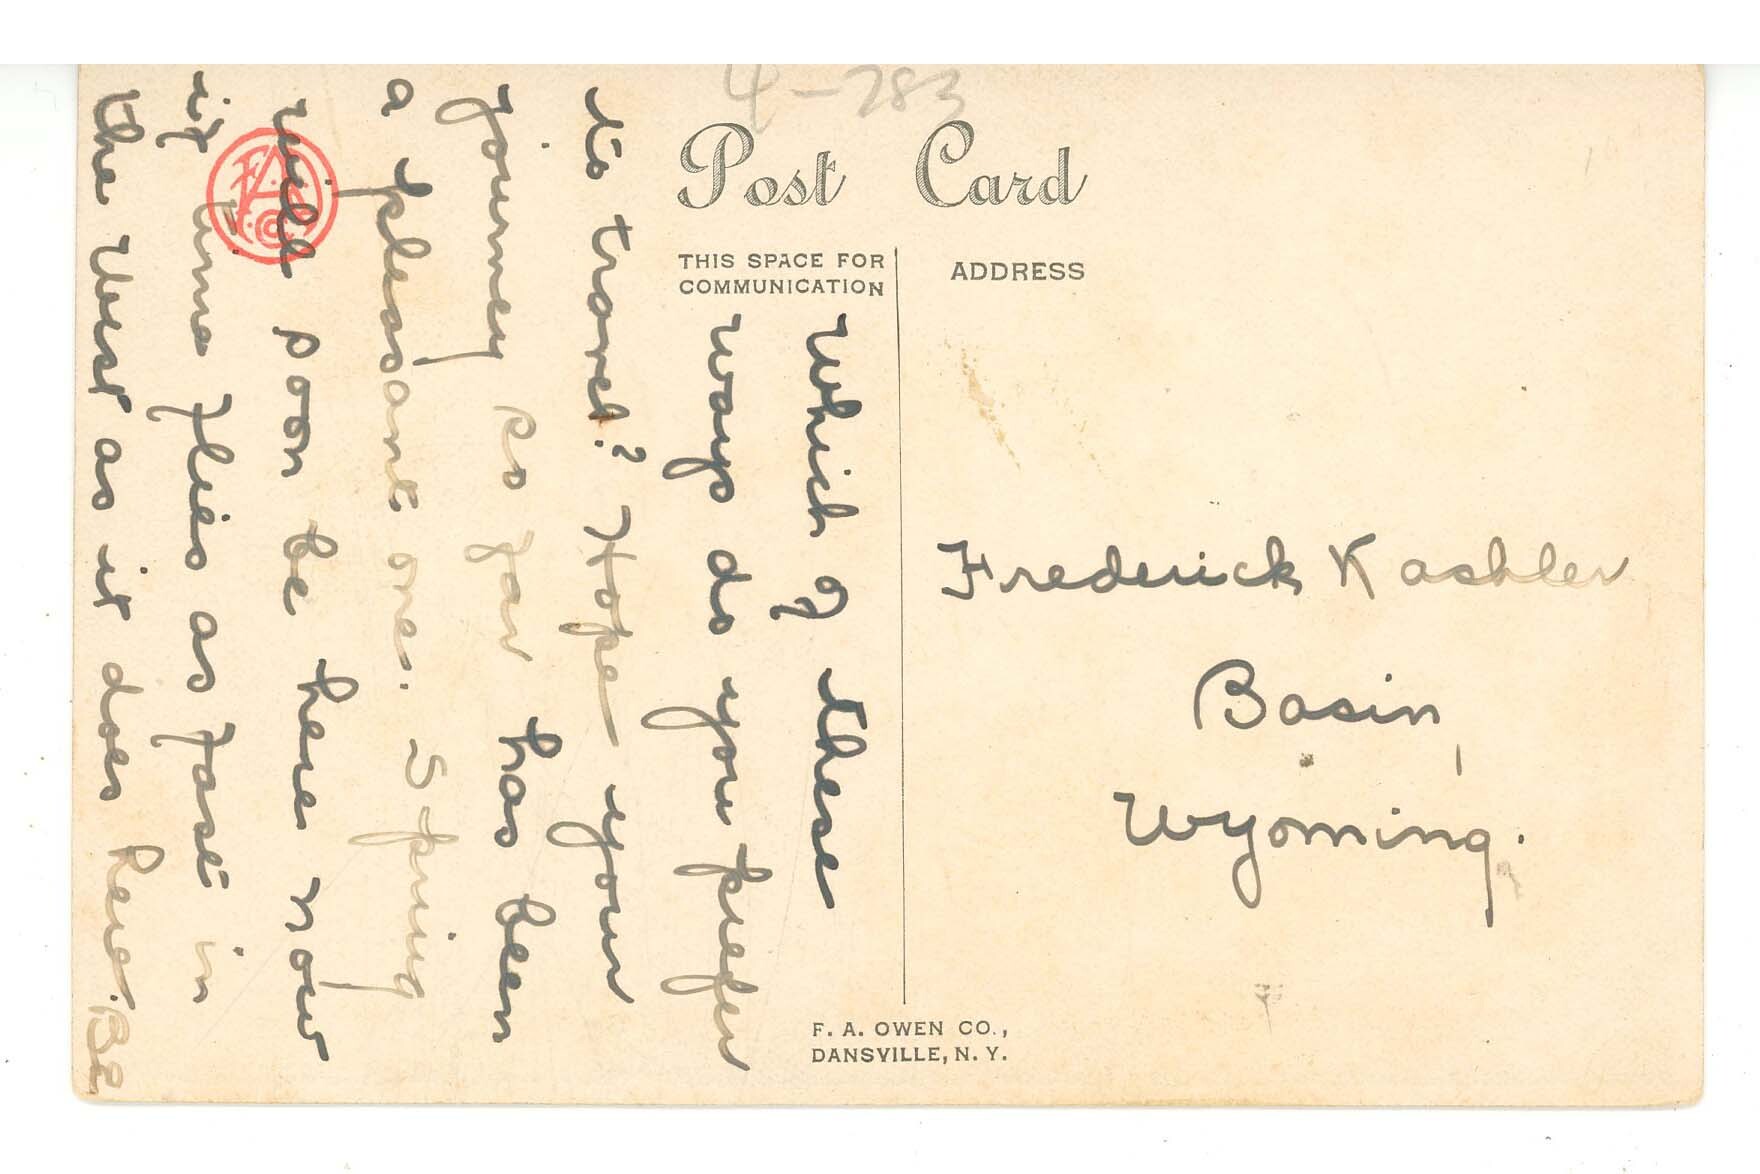 4-283
Post Card
THIS SPACE FOR
COMMUNICATION
ADDRESS
Which of these
ways do you prefer
to travel? Hope your
journey so far has been
a pleasant one. Spring
will soon be here now
if time flies as fast in
the West as it does here. BL
Frederick Kashler
Basin,
Wyoming.
F. A. OWEN CO.,
DANSVILLE, N. Y.